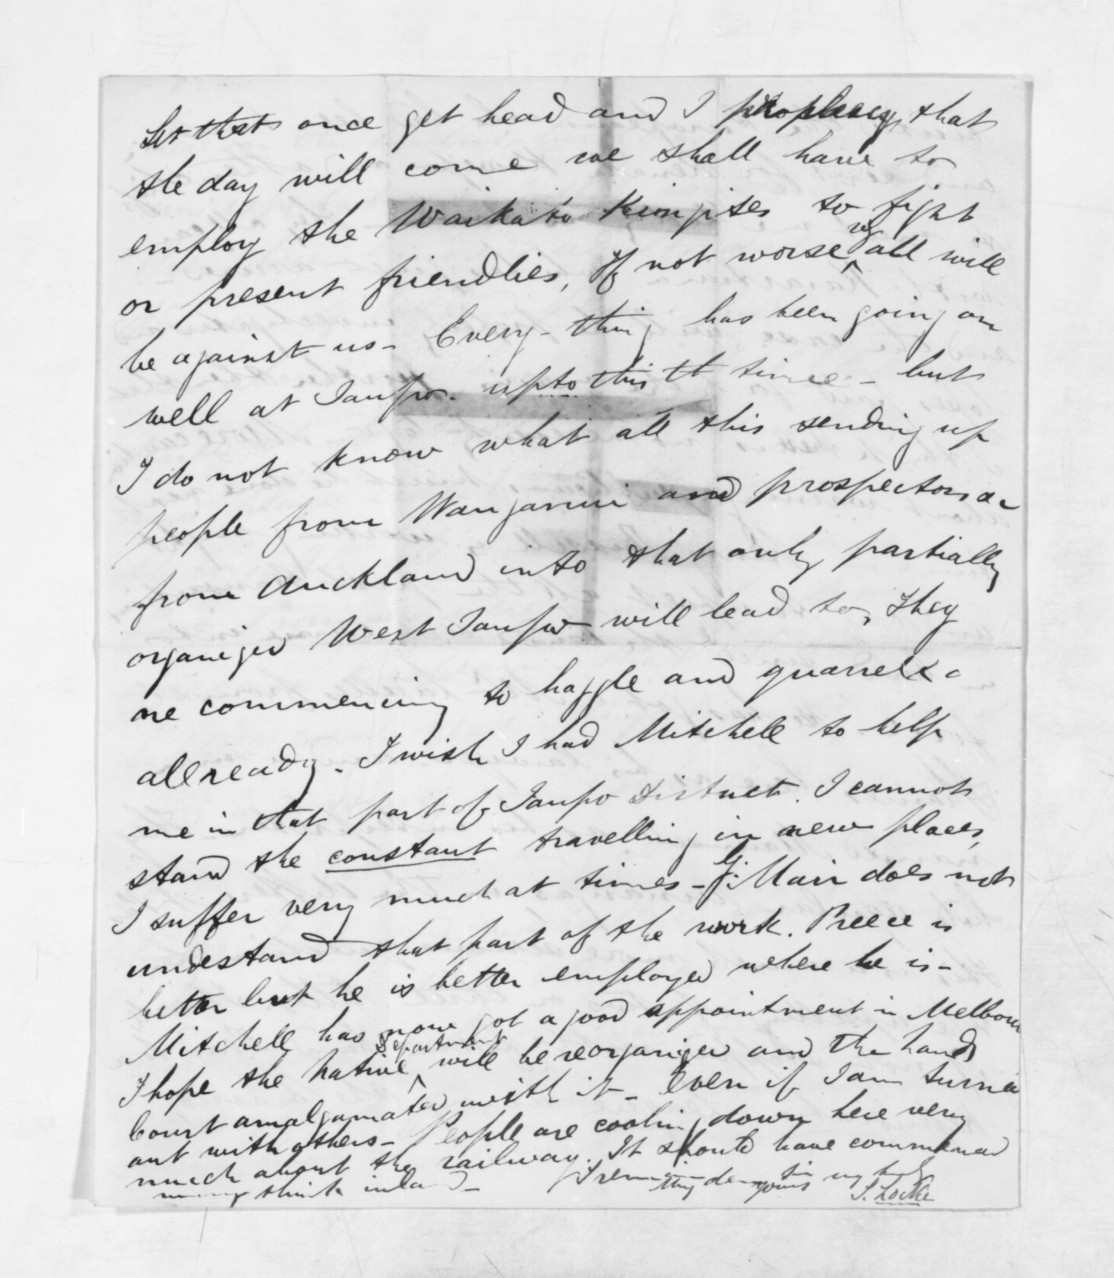 Let that once get head and I prophecy, that
the day will come we shall have to
employ the Waikato Kingites to fight
or present friendlies, If not worse, ^ all will
be against us - Every-thing has been going on
well at Taupo. up to this time - but
I do not know what all this sending up
people from Wanganui and prospectors
from Auckland into that only partially
organized West Taupo will lead to, They
are commencing to haggle and quarrel
allready. I wish I had Mitchell to help
me in that part of Taupo District. I cannot
stand the constant travelling in new places,
I suffer very much at times - G: Mair does not
understand that part of the work. Preece is
better but he is better employed where he is -
Mitchell has now got a good appointment in Melbourne
I hope the Native ^ department will be reorganized and the Lands
Court amalgamated with it - Even if I am turned
out with others - People are cooling down here very
much about the railway. It should have commenced
inland - I remain my dear Sir
yours J. Locke